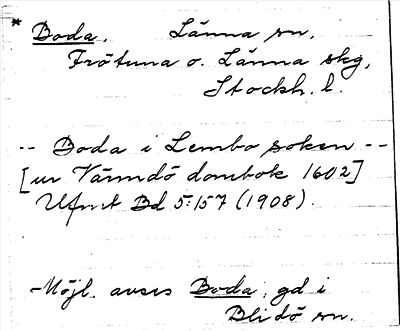 * Boda. Länna sn,
Frötuna o. Länna skg,
Stockh. l.
-- Boda i Lembo soken --
[ur Värmdö dombok 1602]
Ufmt Bd 5:157 (1908).
- Möjl. avses Boda, gd i
Blidö sn.